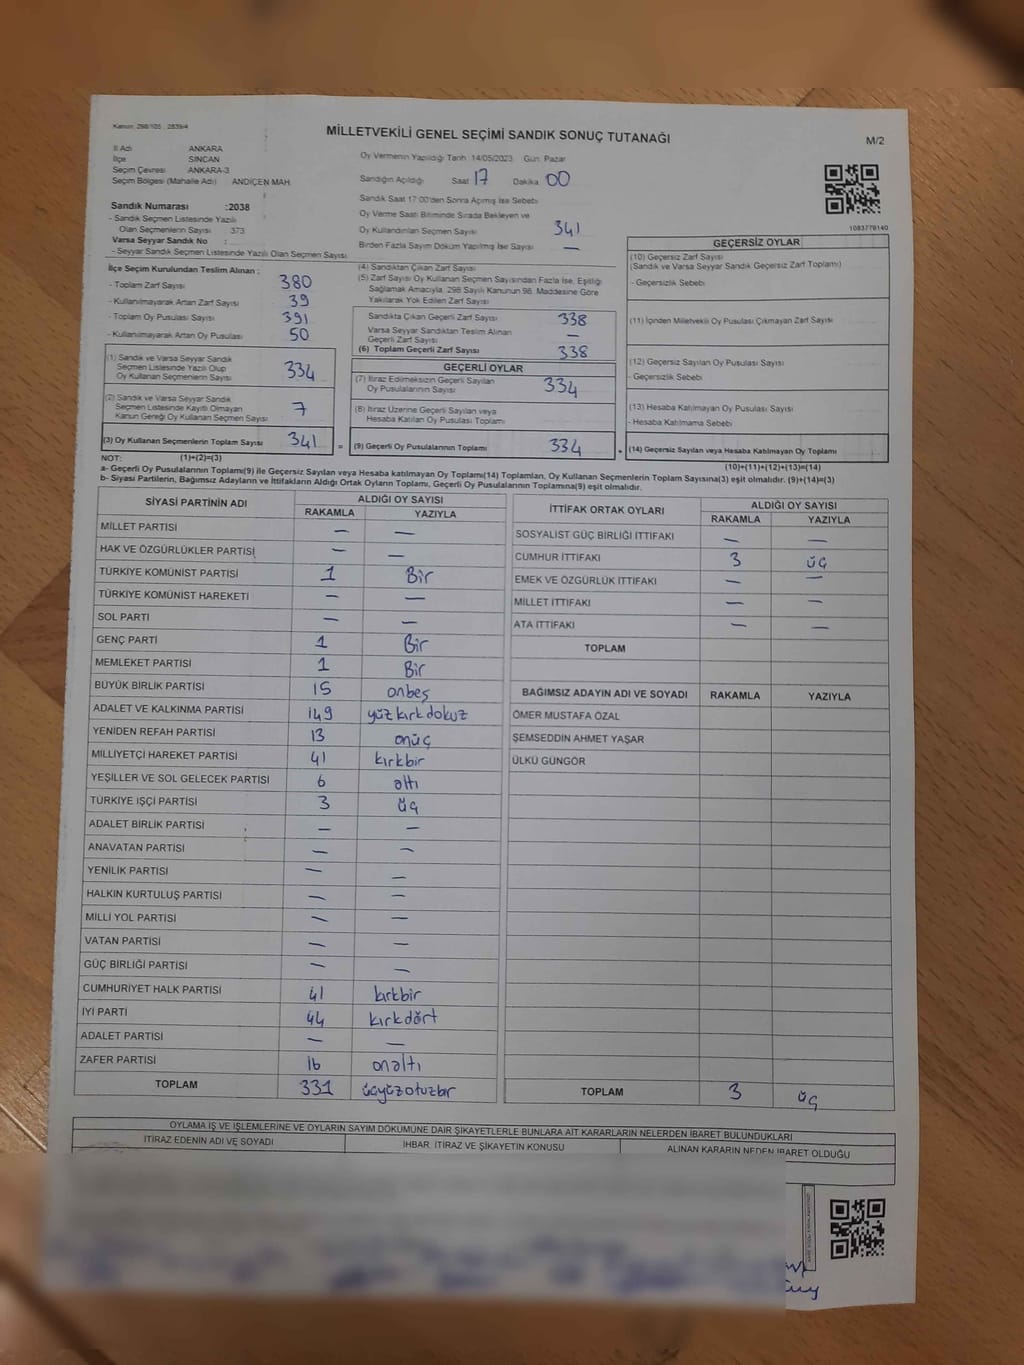 Kanun: 298/105 , 2839/4
MİLLETVEKİLİ GENEL SEÇİMİ SANDIK SONUÇ TUTANAĞI
M/2
İl Adı ANKARA
İlçe SİNCAN
Seçim Çevresi ANKARA-3
Seçim Bölgesi (Mahalle Adı) ANDİÇEN MAH.
Oy Vermenin Yapıldığı Tarih: 14/05/2023 Gün: Pazar
Sandığın Açıldığı Saat 17 Dakika 00
Sandık Saat 17:00'den Sonra Açılmış İse Sebebi
Oy Verme Saati Bitiminde Sırada Bekleyen ve
Oy Kullandırılan Seçmen Sayısı 341
Birden Fazla Sayım Döküm Yapılmış İse Sayısı —
1083779140
Sandık Numarası :2038
- Sandık Seçmen Listesinde Yazılı
Olan Seçmenlerin Sayısı : 373
Varsa Seyyar Sandık No :
- Seyyar Sandık Seçmen Listesinde Yazılı Olan Seçmen Sayısı:
İlçe Seçim Kurulundan Teslim Alınan :
- Toplam Zarf Sayısı 380
- Kullanılmayarak Artan Zarf Sayısı 39
- Toplam Oy Pusulası Sayısı 391
- Kullanılmayarak Artan Oy Pusulası 50
(1) Sandık ve Varsa Seyyar Sandık
Seçmen Listesinde Yazılı Olup
Oy Kullanan Seçmenlerin Sayısı 334
(2) Sandık ve Varsa Seyyar Sandık
Seçmen Listesinde Kayıtlı Olmayan
Kanun Gereği Oy Kullanan Seçmen Sayısı 7
(3) Oy Kullanan Seçmenlerin Toplam Sayısı 341 =
(4) Sandıktan Çıkan Zarf Sayısı
(5) Zarf Sayısı Oy Kullanan Seçmen Sayısından Fazla İse, Eşitliği
Sağlamak Amacıyla, 298 Sayılı Kanunun 98. Maddesine Göre
Yakılarak Yok Edilen Zarf Sayısı
Sandıkta Çıkan Geçerli Zarf Sayısı 338
Varsa Seyyar Sandıktan Teslim Alınan
Geçerli Zarf Sayısı —
(6) Toplam Geçerli Zarf Sayısı 338
GEÇERLİ OYLAR
(7) İtiraz Edilmeksizin Geçerli Sayılan
Oy Pusulalarının Sayısı 334
(8) İtiraz Üzerine Geçerli Sayılan veya
Hesaba Katılan Oy Pusulası Toplamı
(9) Geçerli Oy Pusulalarının Toplamı 334 +
GEÇERSİZ OYLAR
(10) Geçersiz Zarf Sayısı
(Sandık ve Varsa Seyyar Sandık Geçersiz Zarf Toplamı)
- Geçersizlik Sebebi
(11) İçinden Milletvekili Oy Pusulası Çıkmayan Zarf Sayısı
(12) Geçersiz Sayılan Oy Pusulası Sayısı
- Geçersizlik Sebebi
(13) Hesaba Katılmayan Oy Pusulası Sayısı
- Hesaba Katılmama Sebebi
(14) Geçersiz Sayılan veya Hesaba Katılmayan Oy Toplamı
NOT: (1)+(2)=(3)
(10)+(11)+(12)+(13)=(14)
a- Geçerli Oy Pusulalarının Toplamı(9) ile Geçersiz Sayılan veya Hesaba katılmayan Oy Toplamı(14) Toplamları, Oy Kullanan Seçmenlerin Toplam Sayısına(3) eşit olmalıdır. (9)+(14)=(3)
b- Siyasi Partilerin, Bağımsız Adayların ve İttifakların Aldığı Ortak Oyların Toplamı, Geçerli Oy Pusulalarının Toplamına(9) eşit olmalıdır.
SİYASİ PARTİNİN ADI ALDIĞI OY SAYISI
RAKAMLA YAZIYLA
MİLLET PARTİSİ — —
HAK VE ÖZGÜRLÜKLER PARTİSİ — —
TÜRKİYE KOMÜNİST PARTİSİ 1 Bir
TÜRKİYE KOMÜNİST HAREKETİ — —
SOL PARTİ — —
GENÇ PARTİ 1 Bir
MEMLEKET PARTİSİ 1 Bir
BÜYÜK BİRLİK PARTİSİ 15 onbeş
ADALET VE KALKINMA PARTİSİ 149 yüz kırk dokuz
YENİDEN REFAH PARTİSİ 13 onüç
MİLLİYETÇİ HAREKET PARTİSİ 41 kırkbir
YEŞİLLER VE SOL GELECEK PARTİSİ 6 altı
TÜRKİYE İŞÇİ PARTİSİ 3 üç
ADALET BİRLİK PARTİSİ — —
ANAVATAN PARTİSİ — —
YENİLİK PARTİSİ — —
HALKIN KURTULUŞ PARTİSİ — —
MİLLİ YOL PARTİSİ — —
VATAN PARTİSİ — —
GÜÇ BİRLİĞİ PARTİSİ — —
CUMHURİYET HALK PARTİSİ 41 kırkbir
İYİ PARTİ 44 kırkdört
ADALET PARTİSİ — —
ZAFER PARTİSİ 16 onaltı
TOPLAM 331 üçyüzotuzbir
İTTİFAK ORTAK OYLARI ALDIĞI OY SAYISI
RAKAMLA YAZIYLA
SOSYALİST GÜÇ BİRLİĞİ İTTİFAKI — —
CUMHUR İTTİFAKI 3 üç
EMEK VE ÖZGÜRLÜK İTTİFAKI — —
MİLLET İTTİFAKI — —
ATA İTTİFAKI — —
TOPLAM
BAĞIMSIZ ADAYIN ADI VE SOYADI RAKAMLA YAZIYLA
ÖMER MUSTAFA ÖZAL
ŞEMSEDDİN AHMET YAŞAR
ÜLKÜ GÜNGÖR
TOPLAM 3 üç
OYLAMA İŞ VE İŞLEMLERİNE VE OYLARIN SAYIM DÖKÜMÜNE DAİR ŞİKAYETLERLE BUNLARA AİT KARARLARIN NELERDEN İBARET BULUNDUKLARI
İTİRAZ EDENİN ADI VE SOYADI İHBAR, İTİRAZ VE ŞİKAYETİN KONUSU ALINAN KARARIN NEDEN İBARET OLDUĞU